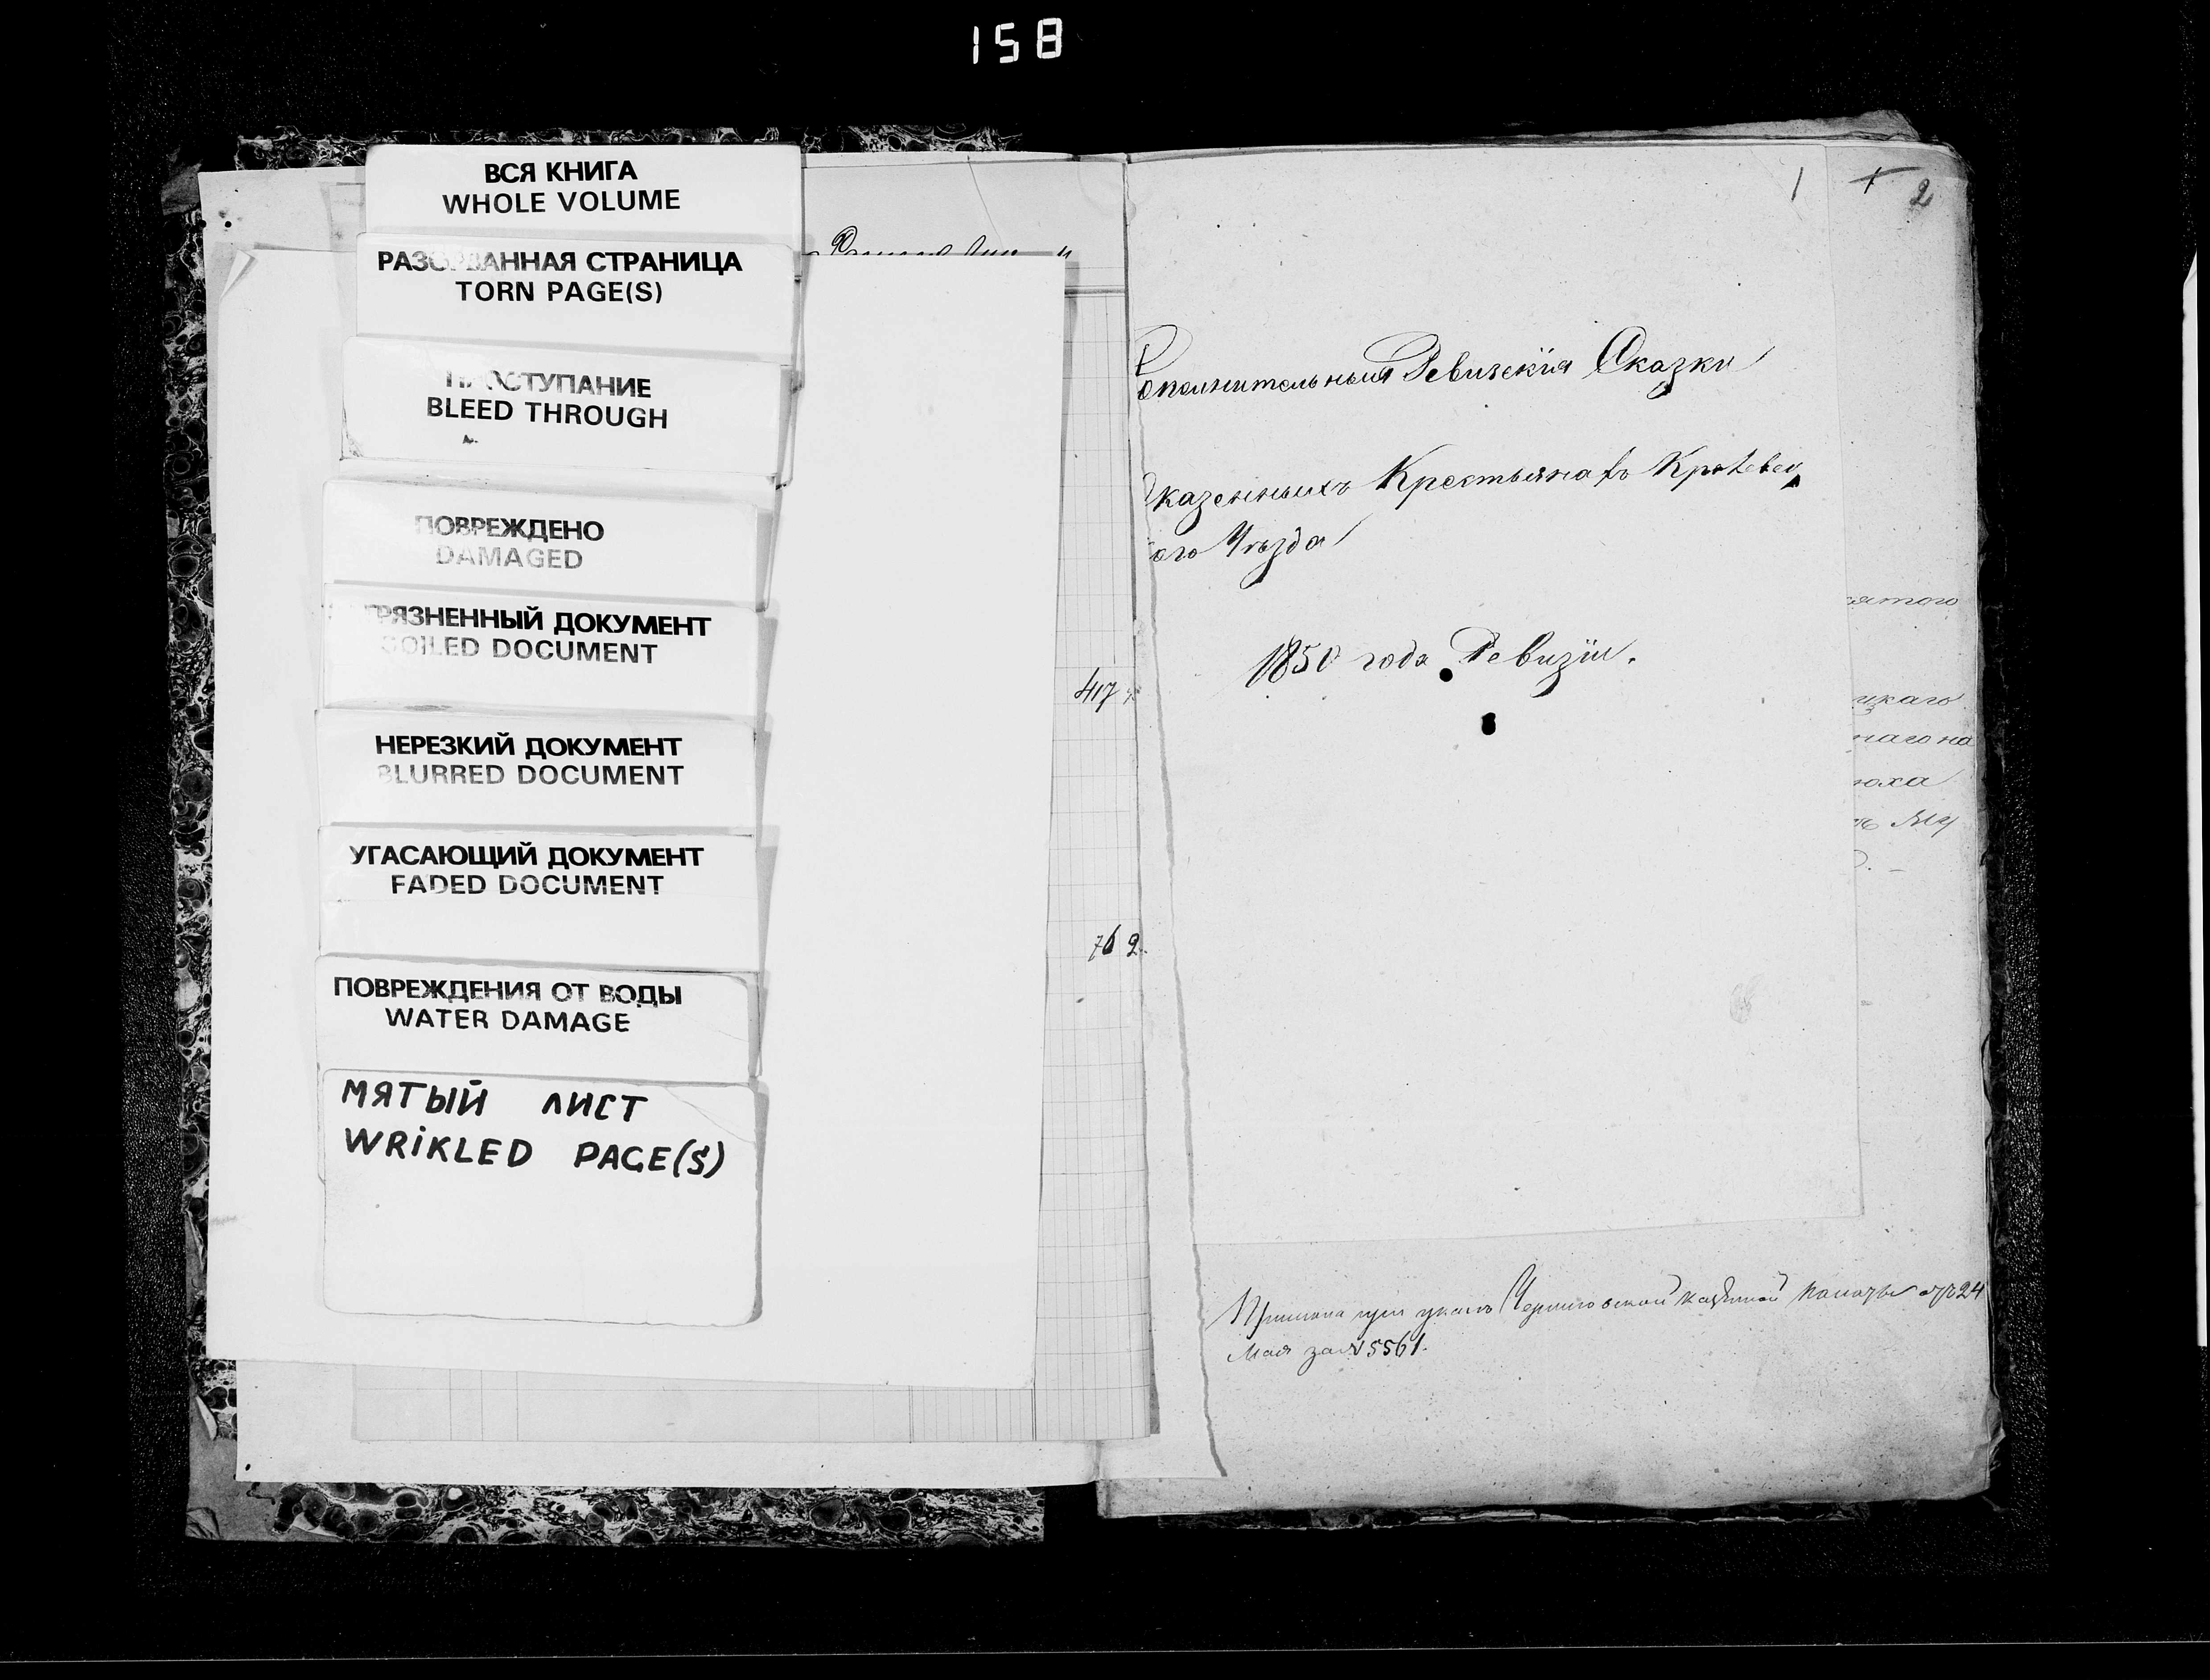 158
ВСЯ КНИГА
WHOLE VOLUME
СТРАНИЦА
TORN PAGE(S)
BLEED THROUGH
ПОВРЕЖДЕНО
DAMAGED
ДОКУМЕНТ
SOILED DOCUMENT
НЕРЕЗКИЙ ДОКУМЕНТ
BLURRED DOCUMENT
УГАСАЮЩИЙ ДОКУМЕНТ
FADED DOCUMENT
ПОВРЕЖДЕНИЯ ОТ ВОДЫ
WATER DAMAGE
МЯТЫЙ ЛИСТ
WRIKLED PAGE(S)
417
762.
1 1 2
ополнительныя Ревизскія Сказки
казенныхъ Крестьянахъ Кролевец
ого Уѣзда
1850 года Ревизіи.
ятого
цкаго
наго на
юха
Черниговской казенной палаты отъ 24
Мая за № 5561.